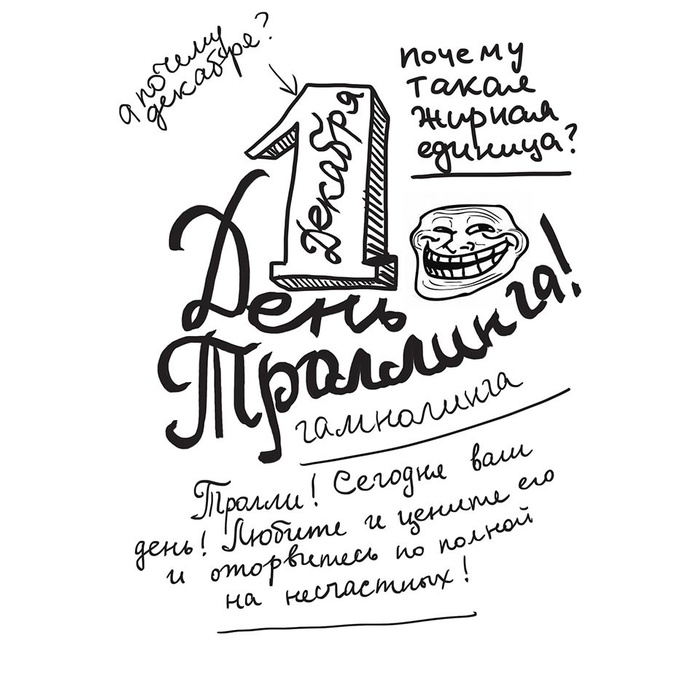 а почему
декабре?
почему
такая
жирная
единица?
1
Декабря
День
Троллинга!
гамнолинга
Тролли! Сегодня ваш
день! Любите и цените его
и оторвитесь по полной
на несчастных!